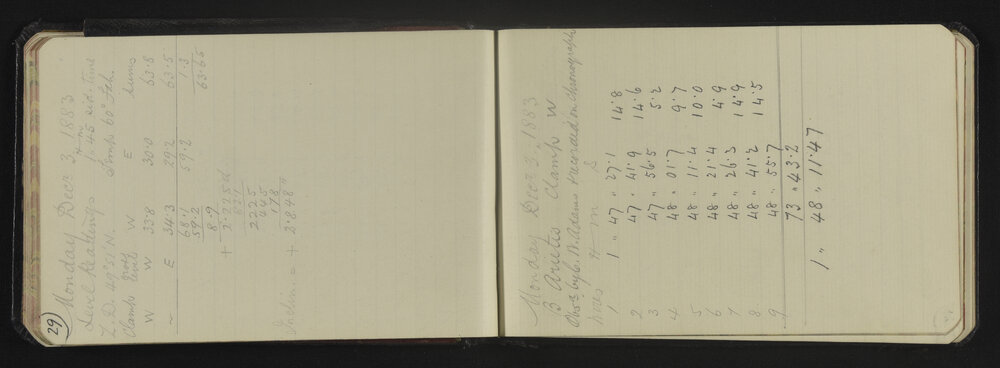 29
Monday Decr 3, 1883
Level Readings 1h 45m sid. time
Z.D. 49° 51' N. Temp 60° Fah.
Clamp W E Sums
W W 33.8 30.0 63.8
" E 34.3 29.2 63.5
68.1 59.2 1.3
59.2 63.65
8.9
2225
445
178
+ 3.848"
Monday Decr 3, 1883
B Arietis Clamp W
Obsd by C. B. Adams & recorded on chronograph
Wires h m s
1 1 " 47 " 27.1 14.8
2 47 " 41.9 14.6
3 47 " 56.5 5.2
4 48 " 01.7 9.7
5 48 " 11.4 10.0
6 48 " 21.4 4.9
7 48 " 26.3 14.9
8 48 " 41.2 14.5
9 48 " 55.7
73 " 43.2
1 " 48 " 11.47